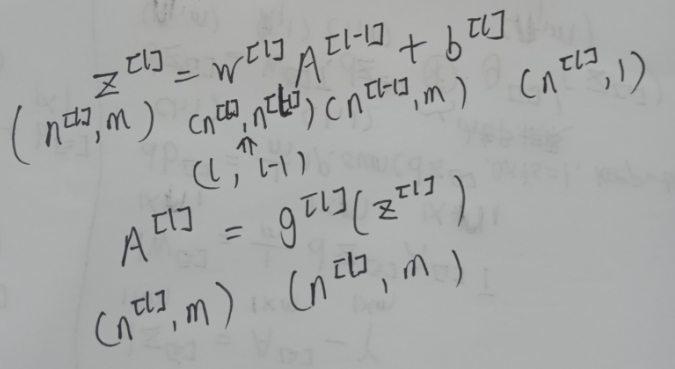 z^[l] = w^[l] A^[l-1] + b^[l]
(n^[l], m) (n^[l], n^[l-1]) (n^[l-1], m) (n^[l], 1)
↑
(l, l-1)
A^[l] = g^[l](z^[l])
(n^[l], m) (n^[l], m)